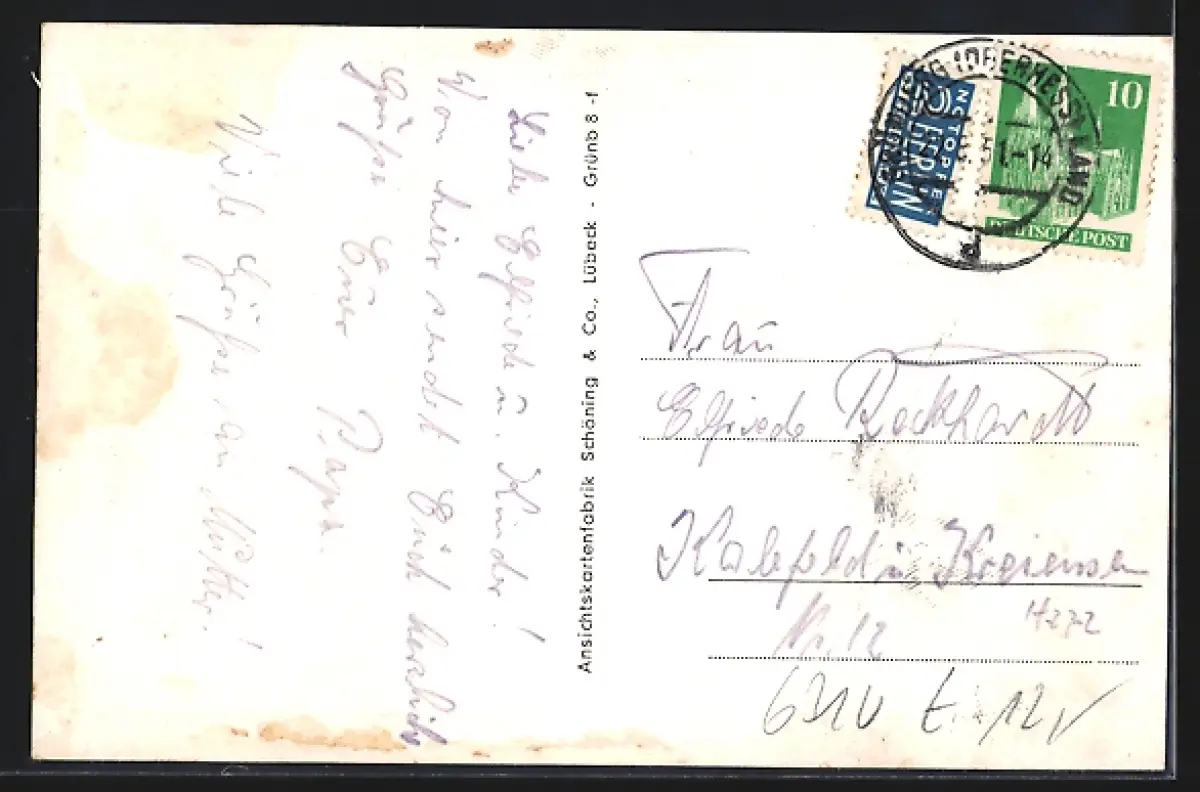 Liebe Elfriede u. Kinder!
Von hier sendet Euch herzliche
Grüße Euer Papa.
Viele Grüße an Mutter!
Ansichtskartenfabrik Schöning & Co., Lübeck - Grünb 8 -f
NOTOPFER
2 BERLIN
STEUERMARKE
10
DEUTSCHE POST
(OBERHESS) LAND
1.-14
Frau
Elfriede Bockhardt
Kalefeld ü. Kreiensen
Harz
Nr. 12